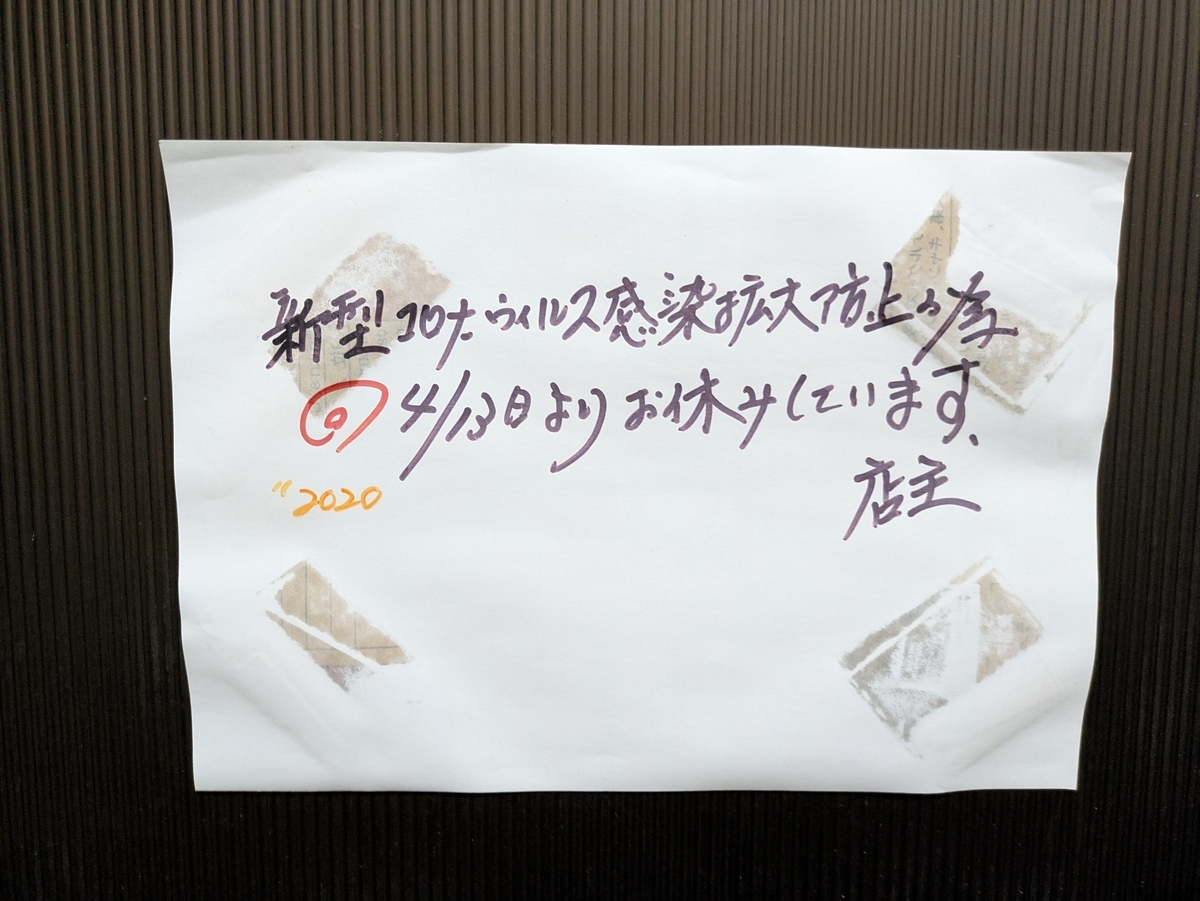 新型コロナウィルス感染拡大防止の為
◎ 4/13日よりお休みしています、
〃2020
店主